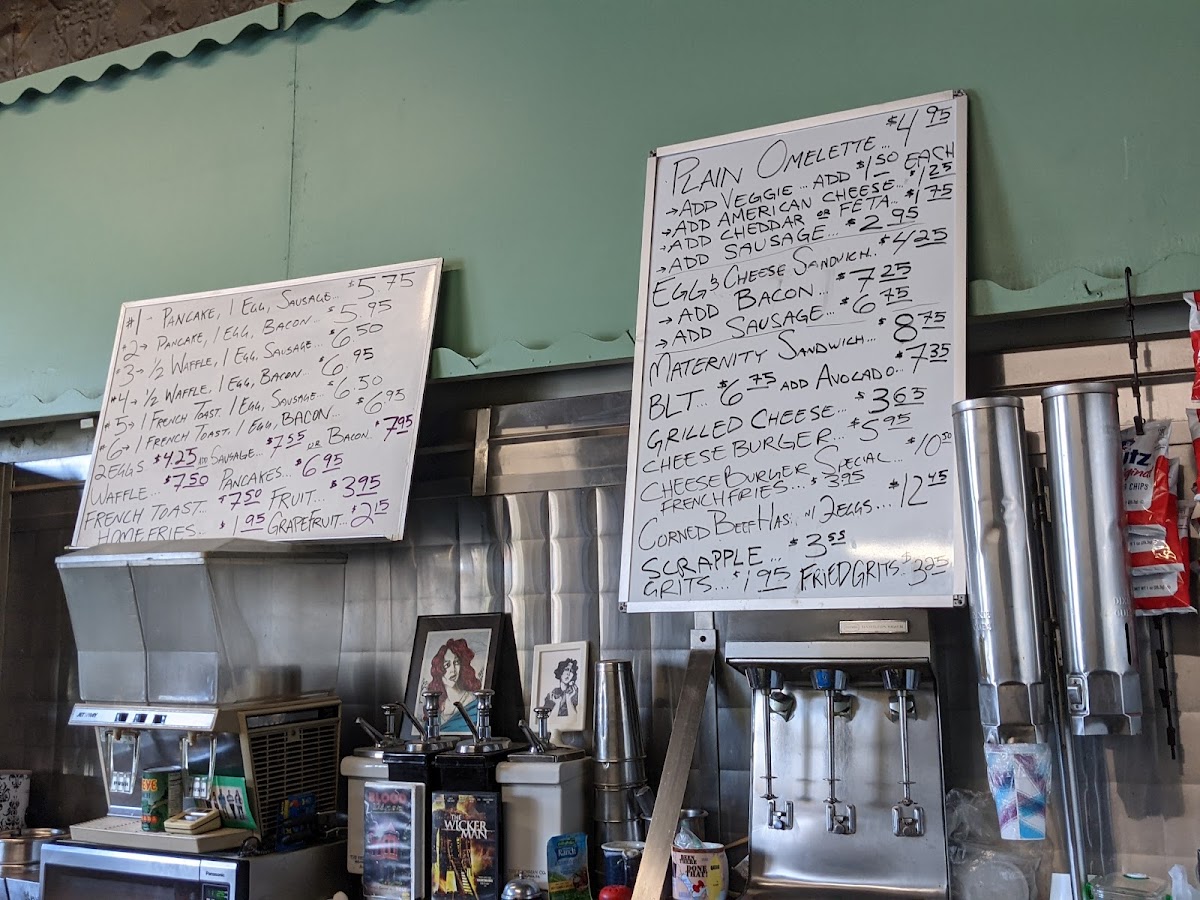 #1 → PANCAKE, 1 EGG, SAUSAGE... $5.75
#2 → PANCAKE, 1 EGG, BACON... $5.95
#3 → 1/2 WAFFLE, 1 EGG, SAUSAGE... $6.50
#4 → 1/2 WAFFLE, 1 EGG, BACON... $6.95
#5 → 1 FRENCH TOAST, 1 EGG, SAUSAGE... $6.50
#6 → 1 FRENCH TOAST, 1 EGG, BACON... $6.95
2 EGGS $4.25 ADD SAUSAGE... $7.55 OR BACON.. $7.95
WAFFLE... $7.50 PANCAKES... $6.95
FRENCH TOAST... $7.50 FRUIT... $3.95
HOMEFRIES... $1.95 GRAPEFRUIT... $2.15
PLAIN OMELETTE... $4.95
→ ADD VEGGIE... ADD $1.50 EACH
→ ADD AMERICAN CHEESE... $1.25
→ ADD CHEDDAR OR FETA... $1.75
→ ADD SAUSAGE... $2.95
EGG & CHEESE SANDWICH.. $4.25
→ ADD BACON... $7.25
→ ADD SAUSAGE... $6.75
MATERNITY SANDWICH... $8.75
BLT... $6.75 ADD AVOCADO... $7.35
GRILLED CHEESE... $3.65
CHEESE BURGER... $5.95
CHEESEBURGER SPECIAL... $10.50
FRENCH FRIES... $3.95
CORNED BEEF HAS.. W/ 2 EGGS... $12.45
SCRAPPLE... $3.55
GRITS... $1.95 FRIED GRITS.. $3.25
THE
WICKER
MAN
BEEN
THERE
DONE
THAT!
Panasonic
CHIPS